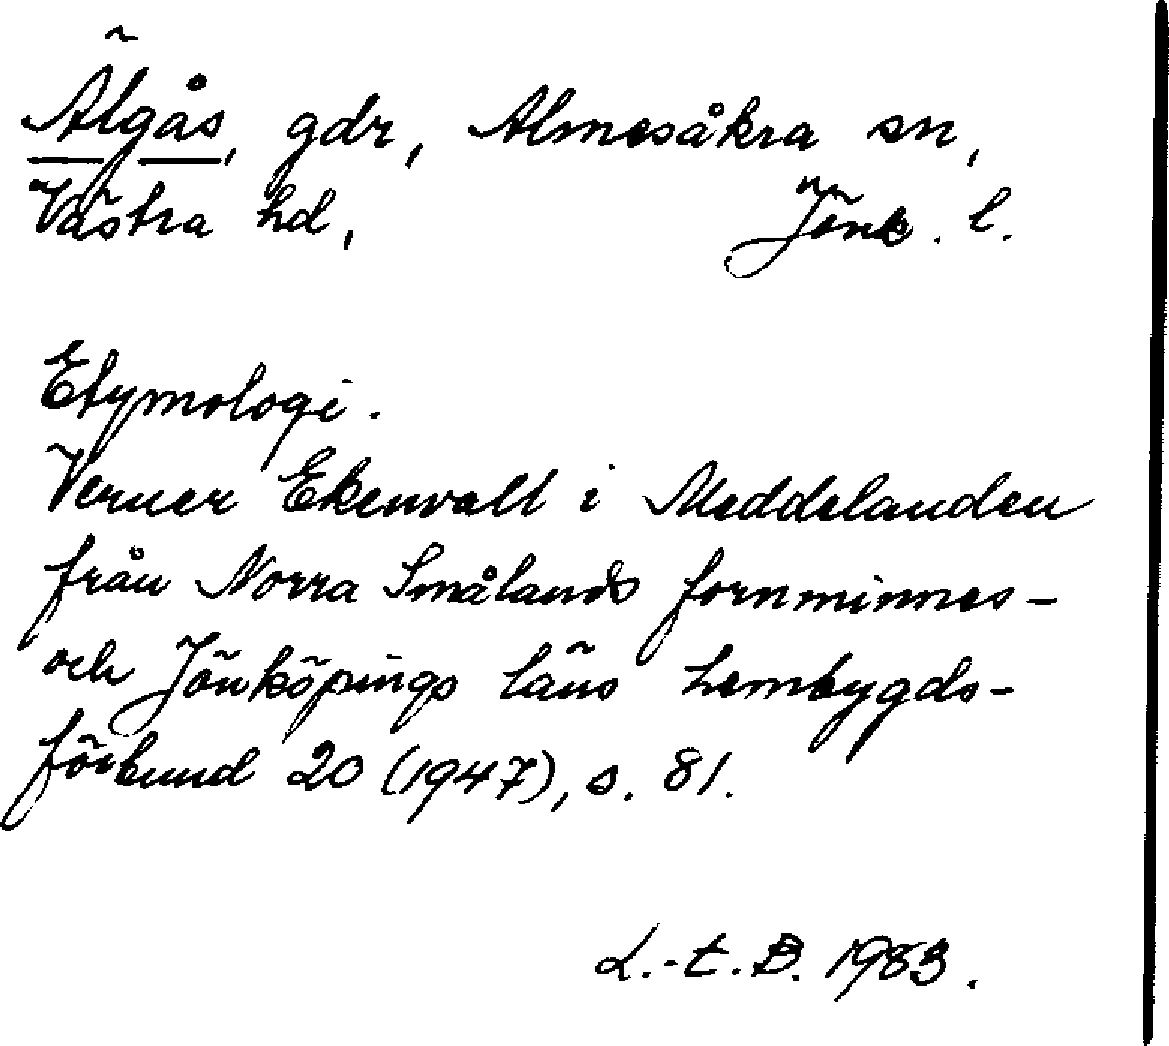 Älgås, gdr, Almesåkra sn,
Västra hd, Jönk. l.
Etymologi.
Verner Ekenvall i Meddelanden
från Norra Smålands fornminnes-
och Jönköpings läns hembygds-
förbund 20 (1947), s. 81.
L.-E. B. 1983.